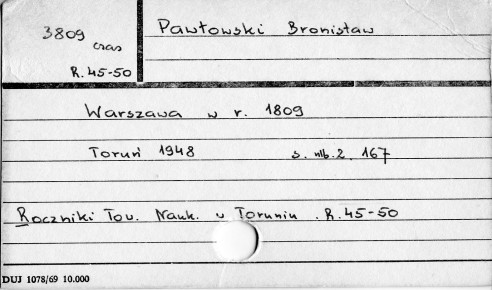 3809
czas
R. 45-50
Pawłowski Bronisław
Warszawa w r. 1809
Toruń 1948 s. nlb. 2, 167
Roczniki Tow. Nauk. w Toruniu. R. 45-50
DUJ 1078/69 10.000